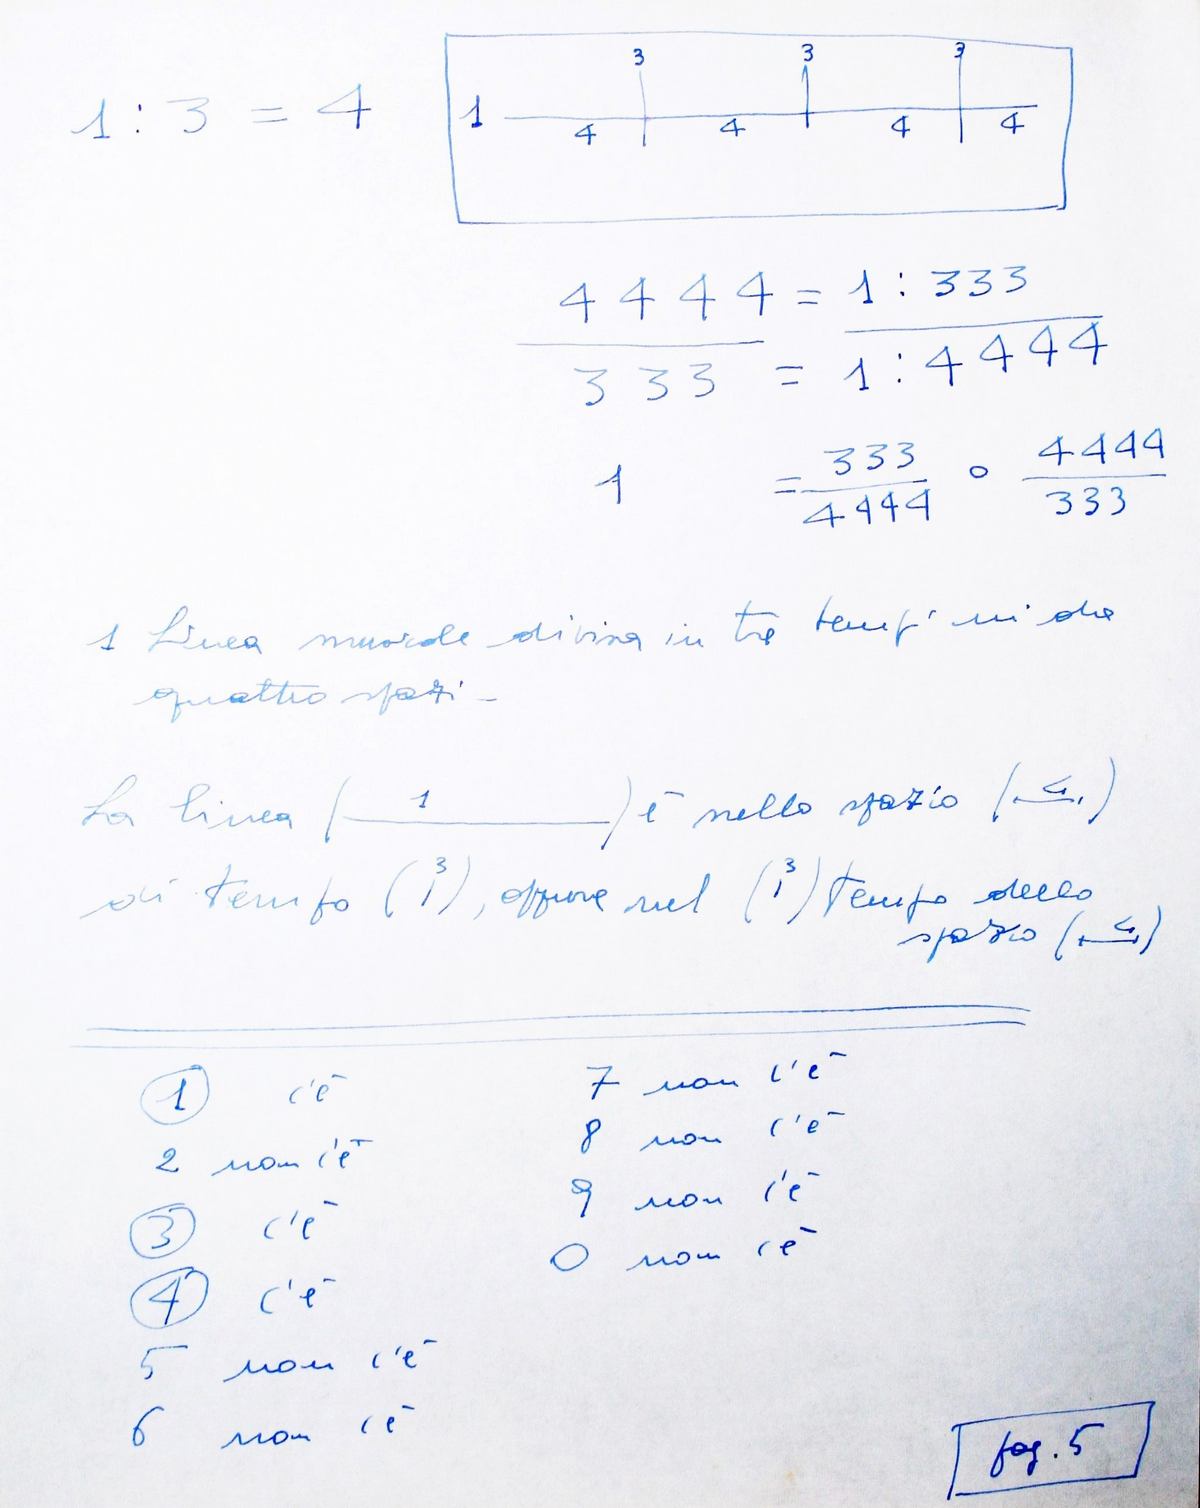 1 : 3 = 4
3 3 3
1
4 4 4 4
4 4 4 4 = 1 : 333
3 3 3 = 1 : 4444
1 = 333 o 4444
4444 333
1 Linea musicale divisa in tre tempi mi da
quattro spazi -
La linea ( 1 ) è nello spazio ( 4 )
di tempo ( 3 ), oppure nel ( 3 ) tempo dello
spazio ( 4 )
1 c'è
2 non c'è
3 c'è
4 c'è
5 non c'è
6 non c'è
7 non c'è
8 non c'è
9 non c'è
0 non c'è
pag. 5